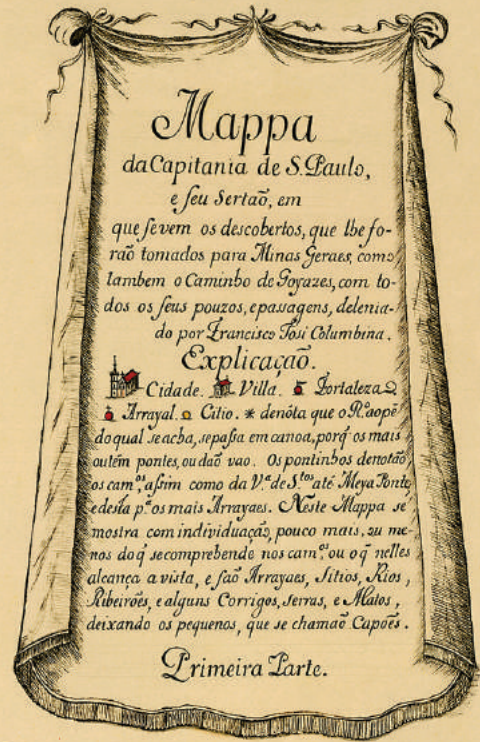 Mappa
da Capitania de S. Paulo,
e seu Sertaõ, em
que se vem os descobertos, que lhe fo-
raõ tomados para Minas Geraes, como,
tambem o Caminho de Goyazes, com to-
dos os seus pouzos, e passagens, delenia-
do por Francisco Tosi Columbina.
Explicaçaõ.
Cidade. Villa. Fortaleza
Arrayal. Citio. * denóta que o R.º aopé
do qual se acha, se passa em canoa, porq̃ os mais
ou tẽm pontes, ou daõ vao. Os pontinhos denotaõ
os cam.ºˢ, assim como da V.ª de S.ᵗᵒˢ até Meya Ponte,
e desta p.ª os mais Arrayaes. Neste Mappa se
mostra com individuaçaõ, pouco mais, ou me-
nos do q̃ se comprehende nos cam.ºˢ ou o q̃ nelles
alcança a vista, e saõ Arrayaes, Sitios, Rios,
Ribeirões, e alguns Corrigos, serras, e Matos,
deixando os pequenos, que se chamaõ Capoẽs.
Primeira Parte.